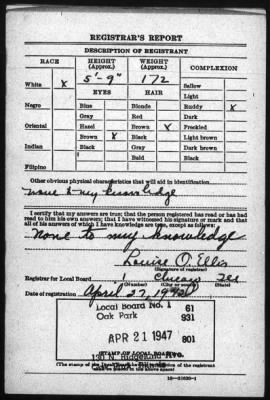 REGISTRAR'S REPORT
DESCRIPTION OF REGISTRANT
RACE HEIGHT (Approx.) WEIGHT (Approx.) COMPLEXION
5'-9" 172
White X Sallow
EYES HAIR Light
Negro Blue Blonde Ruddy X
Gray Red Dark
Oriental Hazel Brown X Freckled
Brown X Black Light brown
Indian Black Gray Dark brown
Bald Black
Filipino
Other obvious physical characteristics that will aid in identification
none to my knowledge
I certify that my answers are true; that the person registered has read or has had
read to him his own answers; that I have witnessed his signature or mark and that
all of his answers of which I have knowledge are true, except as follows:
None to my knowledge
Louise O. Ellis
(Signature of registrar)
Registrar for Local Board 1 Chicago Ill
(Number) (City or county)
Date of registration April 27, 1942
Local Board No. 1 61
Oak Park 931
APR 21 1947 801
130 N. Ridgeland Ave.
(STAMP OF LOCAL BOARD)
(The stamp of the Local Board having jurisdiction of the registrant
shall be placed in the above space)